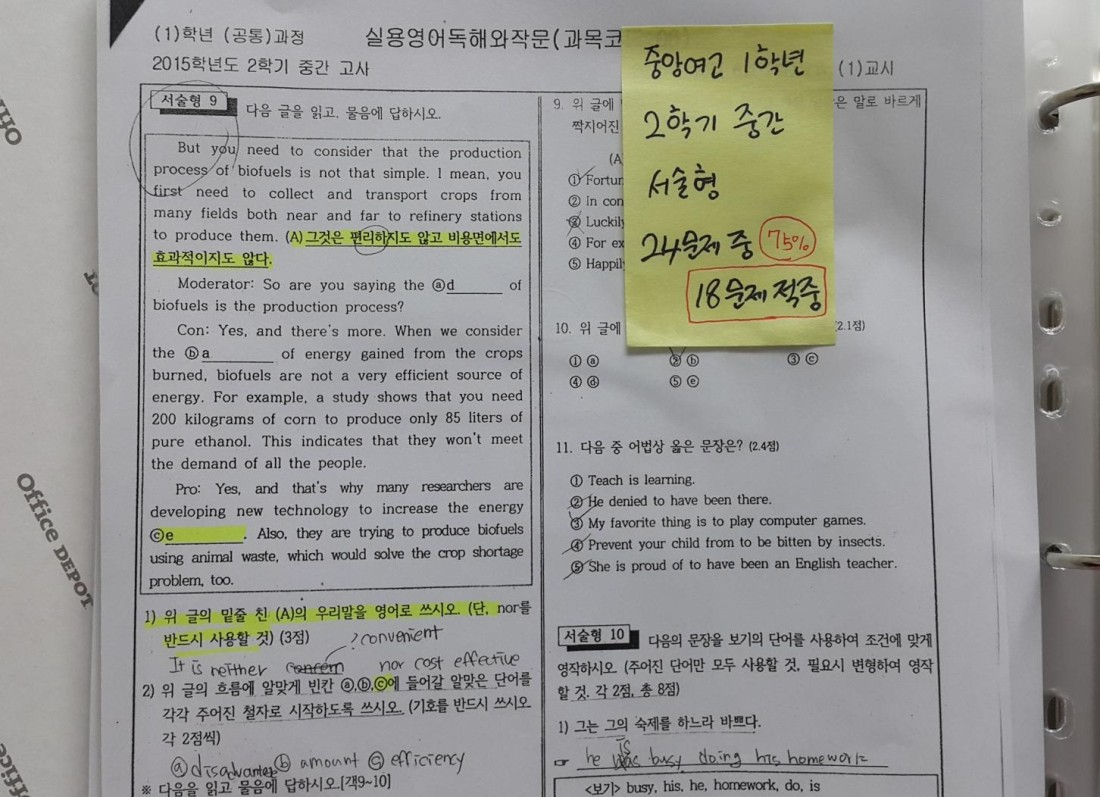 (1)학년 (공통)과정
실용영어독해와작문(과목코
(1)교시
2015학년도 2학기 중간 고사
중앙여고 1학년
2학기 중간
서술형
24문제 중 75%
18문제 적중
서술형 9 다음 글을 읽고, 물음에 답하시오.
But you need to consider that the production
process of biofuels is not that simple. I mean, you
first need to collect and transport crops from
many fields both near and far to refinery stations
to produce them. (A)그것은 편리하지도 않고 비용면에서도
효과적이지도 않다.
Moderator: So are you saying the ⓐd______ of
biofuels is the production process?
Con: Yes, and there's more. When we consider
the ⓑa________ of energy gained from the crops
burned, biofuels are not a very efficient source of
energy. For example, a study shows that you need
200 kilograms of corn to produce only 85 liters of
pure ethanol. This indicates that they won't meet
the demand of all the people.
Pro: Yes, and that's why many researchers are
developing new technology to increase the energy
ⓒe________. Also, they are trying to produce biofuels
using animal waste, which would solve the crop shortage
problem, too.
1) 위 글의 밑줄 친 (A)의 우리말을 영어로 쓰시오. (단, nor를
반드시 사용할 것) (3점)
convenient
It is neither nor cost effective
2) 위 글의 흐름에 알맞게 빈칸 ⓐ,ⓑ,ⓒ에 들어갈 알맞은 단어를
각각 주어진 철자로 시작하도록 쓰시오. (기호를 반드시 쓰시오
각 2점씩)
ⓐ disadvantage ⓑ amount ⓒ efficiency
※ 다음을 읽고 물음에 답하시오.[객9~10]
9. 위 글에 은 말로 바르게
짝지어진
(A
① Fortun
② In con
③ Luckily
④ For ex
⑤ Happil
10. 위 글에 (2.1점)
① ⓐ ② ⓑ ③ ⓒ
④ ⓓ ⑤ ⓔ
11. 다음 중 어법상 옳은 문장은? (2.4점)
① Teach is learning.
② He denied to have been there.
③ My favorite thing is to play computer games.
④ Prevent your child from to be bitten by insects.
⑤ She is proud of to have been an English teacher.
서술형 10 다음의 문장을 보기의 단어를 사용하여 조건에 맞게
영작하시오 (주어진 단어만 모두 사용할 것, 필요시 변형하여 영작
할 것. 각 2점, 총 8점)
1) 그는 그의 숙제를 하느라 바쁘다.
☞ he is busy doing his homework
<보기> busy, his, he, homework, do, is
Office DEPOT